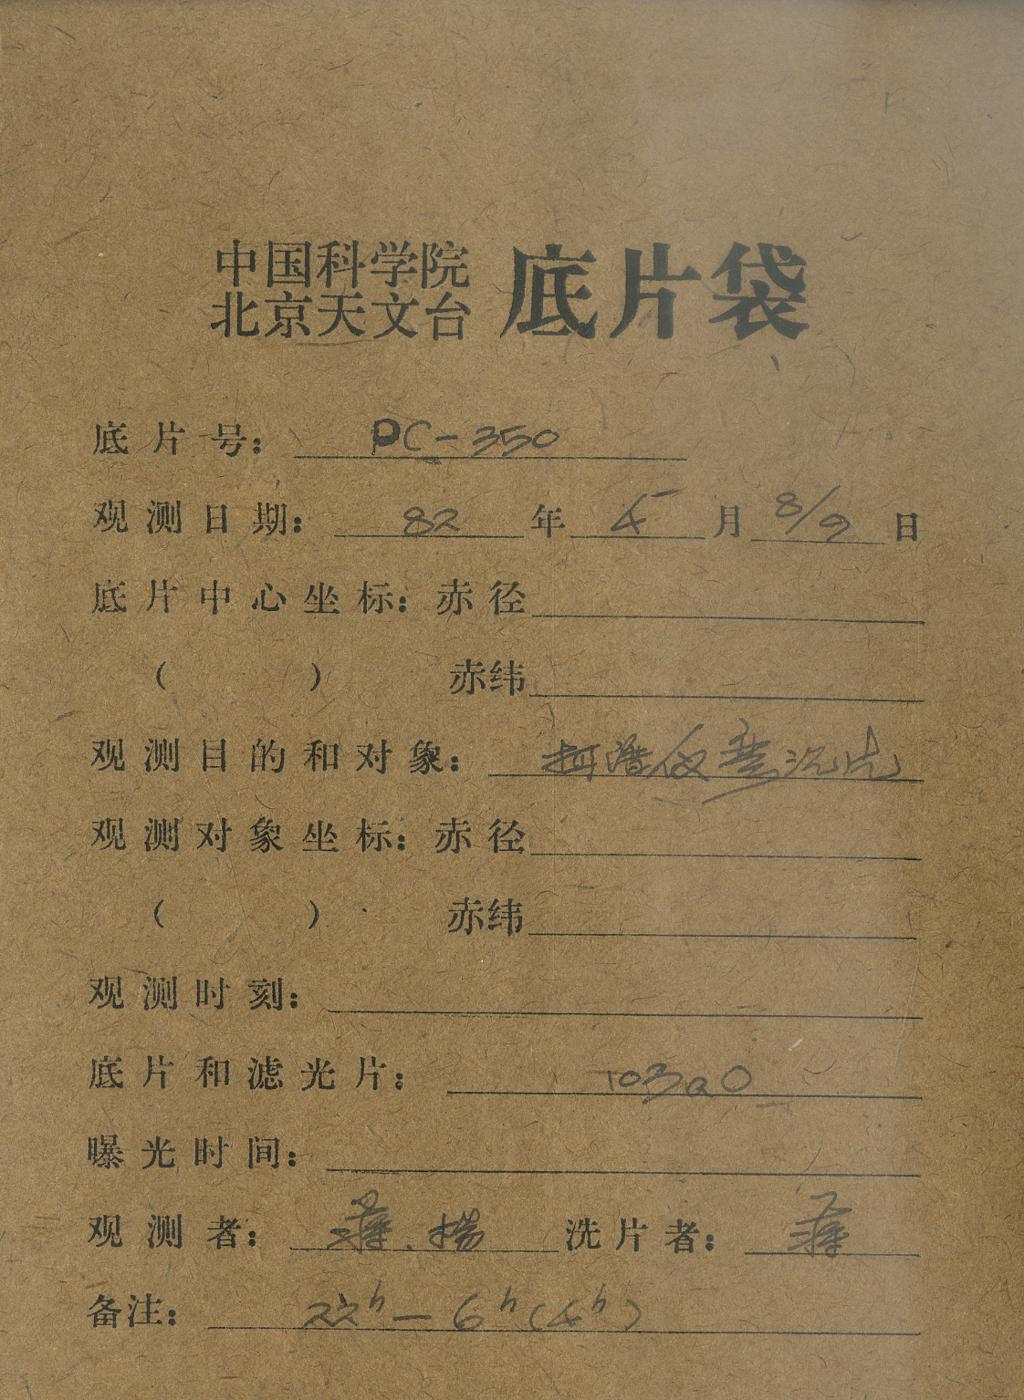 中国科学院
北京天文台 底片袋
底片号: PC-350
观测日期: 82 年 4 月 8/9 日
底片中心坐标: 赤径
( ) 赤纬
观测目的和对象:
观测对象坐标: 赤径
( ) 赤纬
观测时刻:
底片和滤光片: 103aO
曝光时间:
观测者: 洗片者:
备注: 22h — 6h (4h)